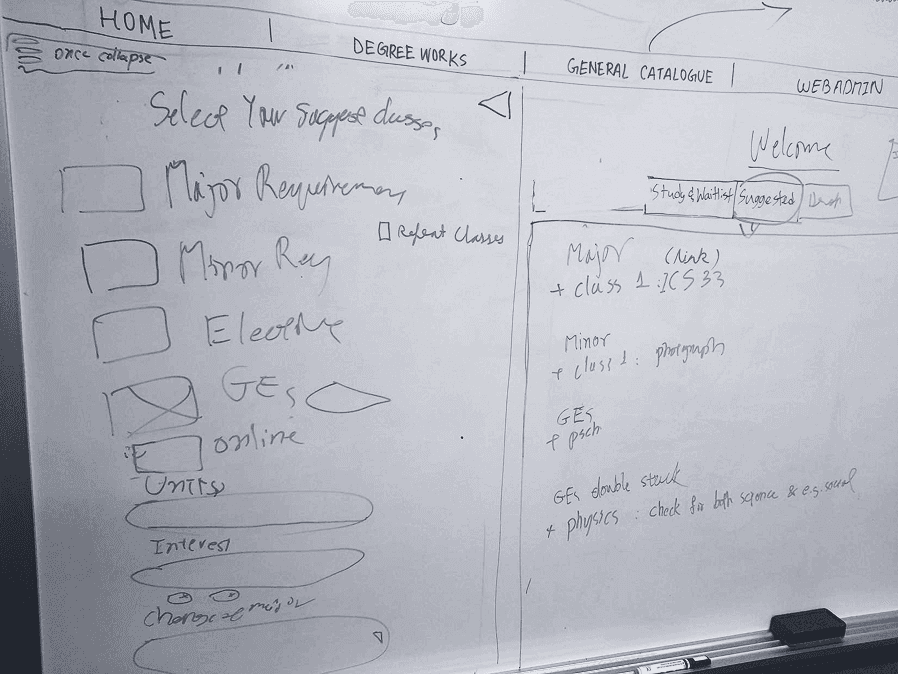 HOME
DEGREE WORKS
GENERAL CATALOGUE
WEBADMIN
once collapse
Select Your suggest classes
Welcome
Study & Waitlist
Suggested
Major Requiremen
Repeat Classes
Minor Req
Elective
GEs
online
Units
Interest
change of major
Major (link)
+ class 1 : ICS 33
Minor
+ class 1 :
GEs
+ psch
GEs double stuck
+ physics : check for both science & e.g. social